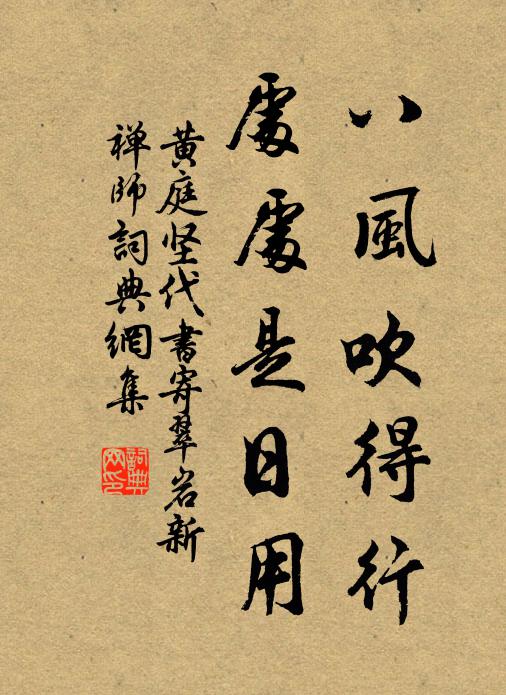 八風吹得行
處處是日用
黃庭坚代書寄翠岩新
禅師詞典網集
詞典網印